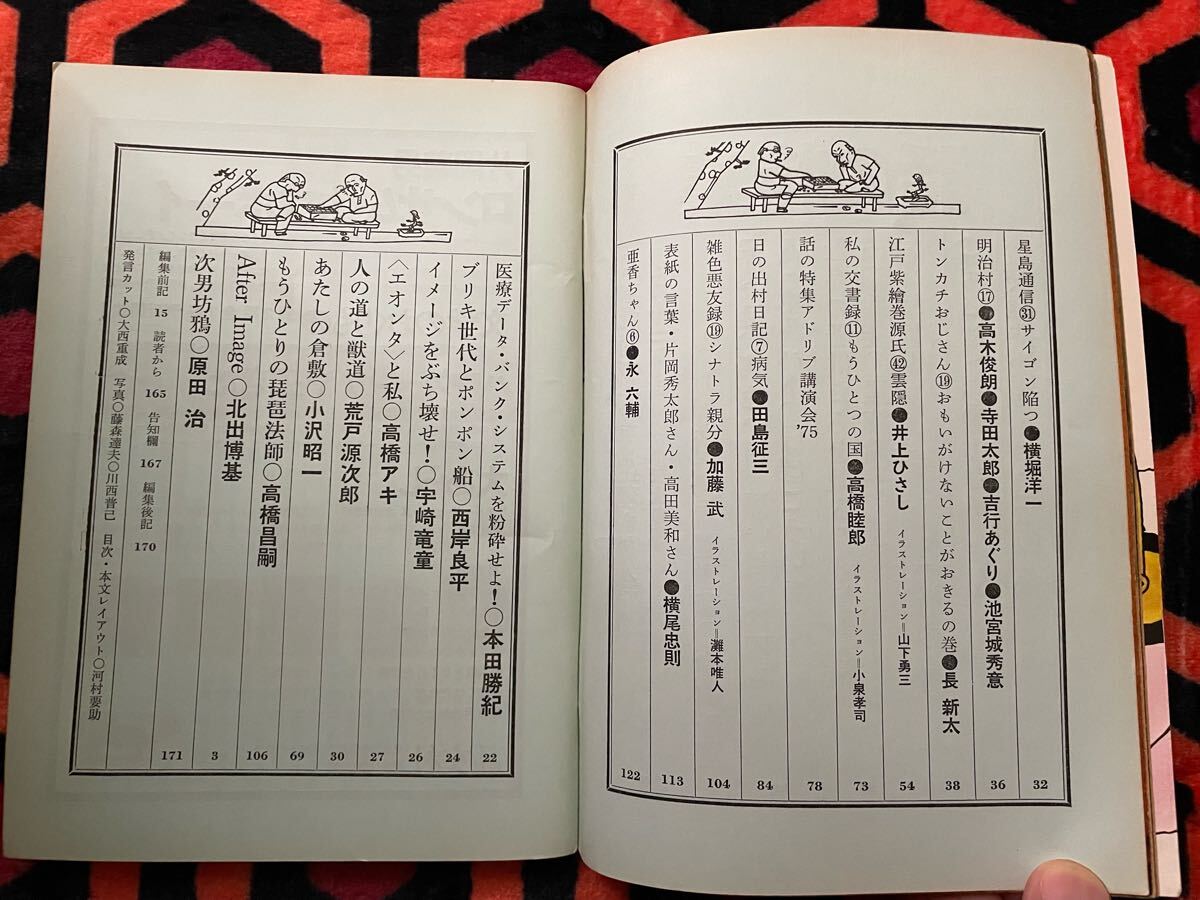 星島通信㉛サイゴン陥つ●横堀洋一 32
明治村⑰●高木俊朗●寺田太郎●吉行あぐり●池宮城秀意 36
トンカチおじさん⑲おもいがけないことがおきるの巻●長 新太 38
江戸紫繪巻源氏㊷雲隠●井上ひさし イラストレーション=山下勇三 54
私の交書録⑪もうひとつの国●高橋睦郎 イラストレーション=小泉孝司 73
話の特集アドリブ講演会'75 78
日の出村日記⑦病気●田島征三 84
雑色悪友録⑲シナトラ親分●加藤 武 イラストレーション=灘本唯人 104
表紙の言葉・片岡秀太郎さん・高田美和さん●横尾忠則 113
亜香ちゃん⑥●永 六輔 122
医療データ・バンク・システムを粉砕せよ!○本田勝紀 22
ブリキ世代とポンポン船○西岸良平 24
イメージをぶち壊せ!○宇崎竜童 26
〈エオンタ〉と私○高橋アキ 27
人の道と獣道○荒戸源次郎 30
あたしの倉敷○小沢昭一 69
もうひとりの琵琶法師○高橋昌嗣 106
After Image○北出博基 3
次男坊鴉○原田 治 171
編集前記 15 読者から 165 告知欄 167 編集後記 170
発言カット○大西重成 写真○藤森達夫○川西普己 目次・本文レイアウト○河村要助